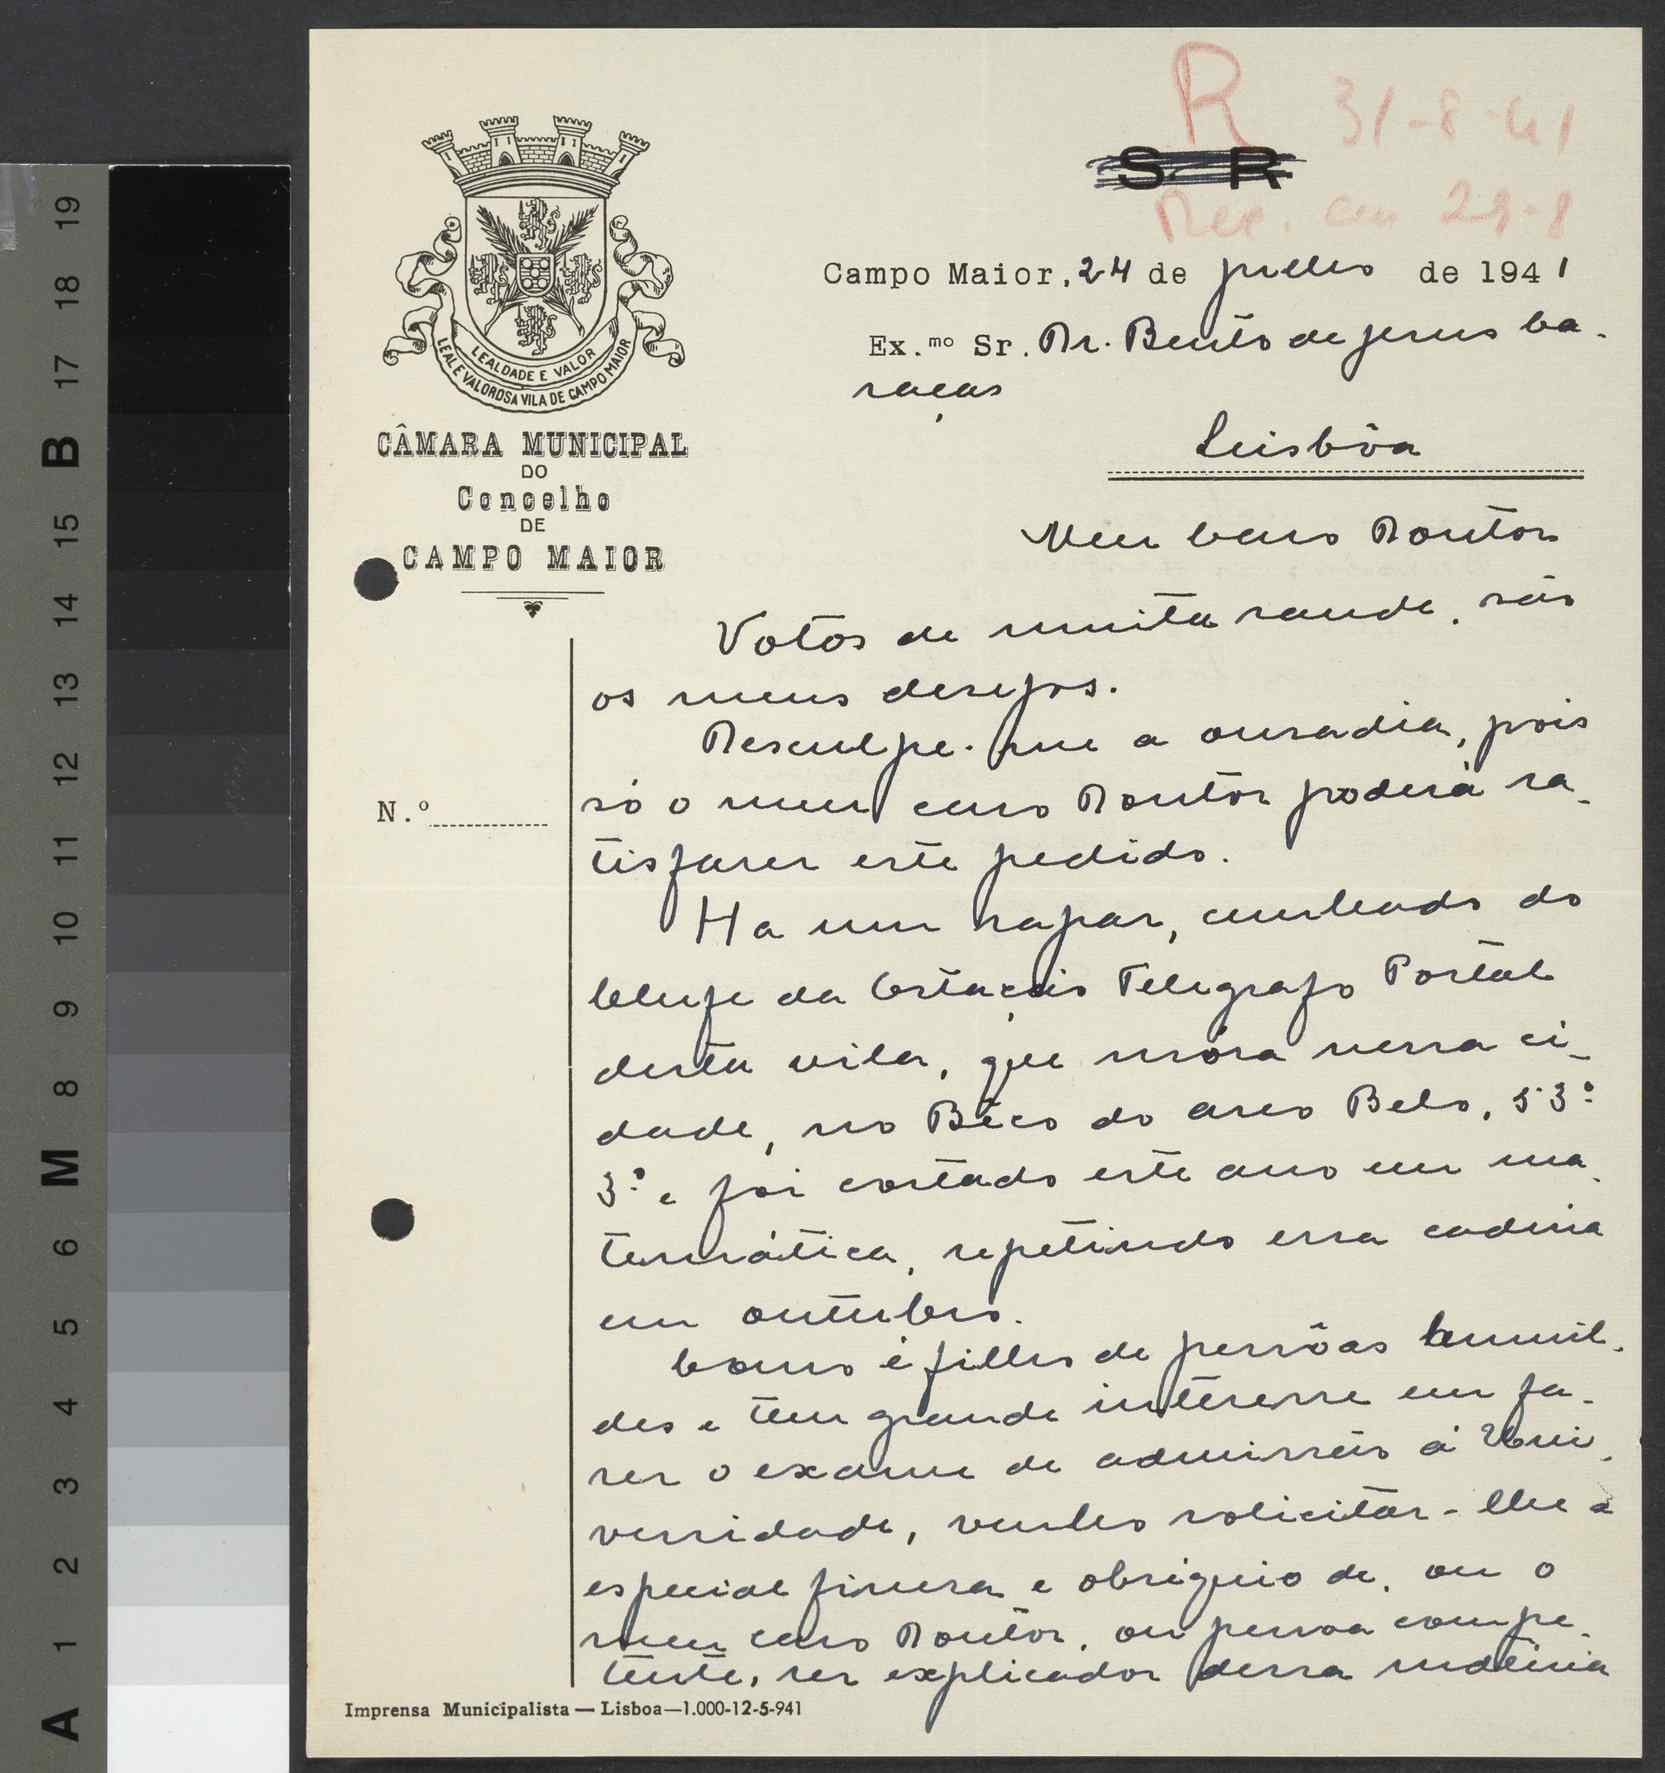 R 31-8-41
S. R.
Rec. em 29-8
Campo Maior, 24 de julho de 1941
Ex.mo Sr. Dr. Bento de Jesus Ca-
raças
Lisbôa
LEALDADE E VALOR
LEAL E VALOROSA VILA DE CAMPO MAIOR
CÂMARA MUNICIPAL
DO
Concelho
DE
CAMPO MAIOR
Meu Caro Doutor
Votos de muita saude, são
os meus desejos.
Desculpe-me a ousadia, pois
N.º
só o meu caro Doutor poderá sa-
tisfazer este pedido.
Ha um rapaz, cunhado do
Chefe da Estação Telegrafo Postal
desta vila, que móra nessa ci-
dade, no Bêco do Arco Belo, 5 3º
3º e foi cortado este ano em ma-
temática, repetindo essa cadeira
em outubro.
Como é filho de pessôas humil-
des e tem grande interesse em fa-
zer o exame de admissão á Uni-
versidade, venho solicitar-lhe a
especial fineza e obsequio de, ou o
meu caro Doutor, ou pessoa compe-
tente, ser explicador dessa matéria
Imprensa Municipalista — Lisboa—1.000-12-5-941
19
18
17
B
15
14
13
12
11
10
9
8
M
6
5
4
3
2
1
A